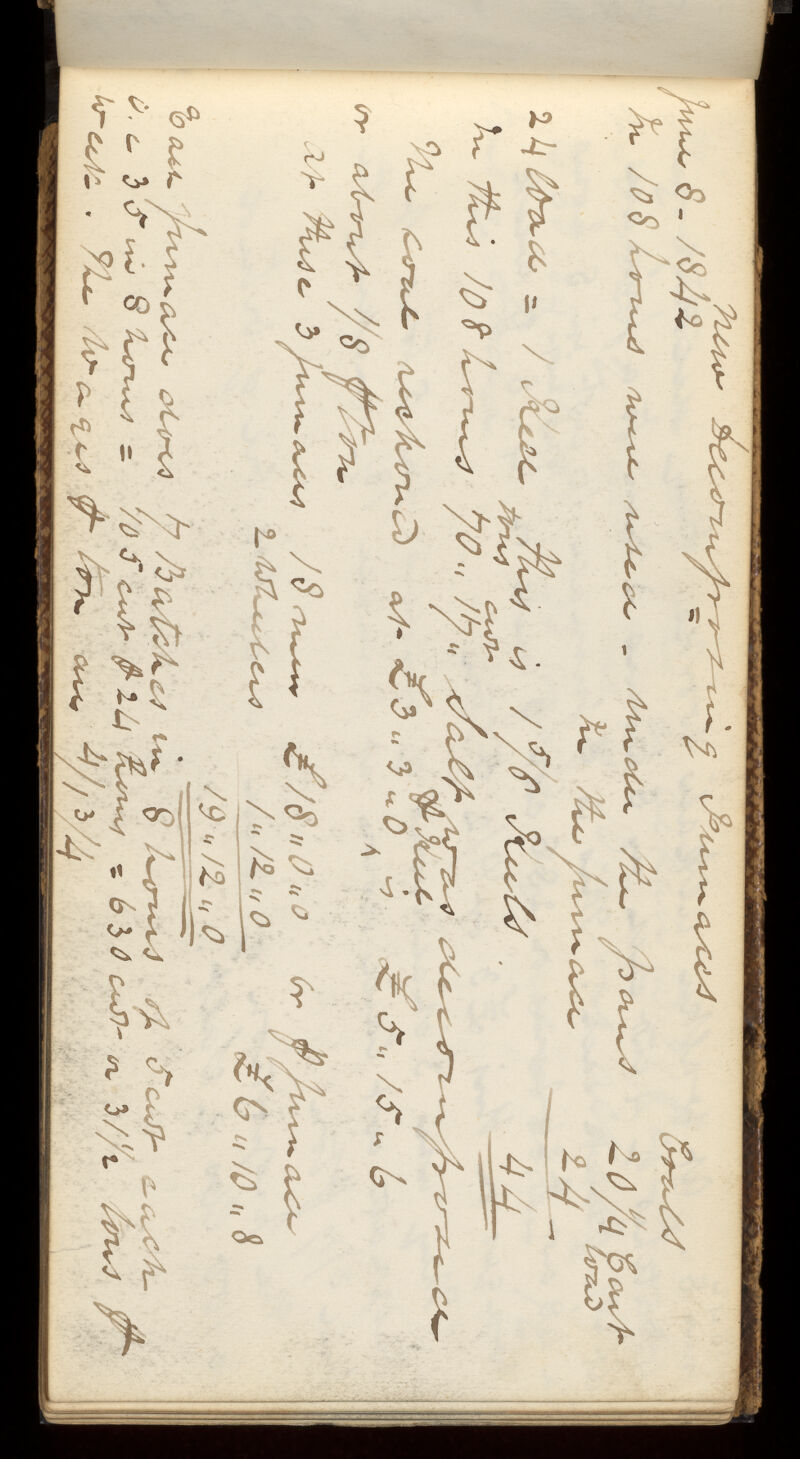 New Decomposing Furnaces
June 8 - 1842 Coals
In 108 hours were used - under the pans 20 1/4 Cart load
In the furnace 24
44
24 load = 1 Keel this is 1 5/6 Keels.
tons cwt
In this 108 hours 70 " 17 " Salt was decomposed
The coal reckoned at £3 " 3 " 0 ^ ℔ Keel is £5 " 15 " 6
or about 1/8 ℔ ton
at these 3 furnaces 18 men £18 " 0 " 0 or ℔ furnace
2 Wheelers 1 " 12 " 0 £6 " 10 " 8
19 " 12 " 0
Each furnace does 7 Batches in 8 hours of 5 cwt each
i.e 35 in 8 hours = 105 cwt ℔ 24 hours = 630 cwt or 31 1/2 tons ℔
week. The Wages ℔ ton are 4/1 3/4